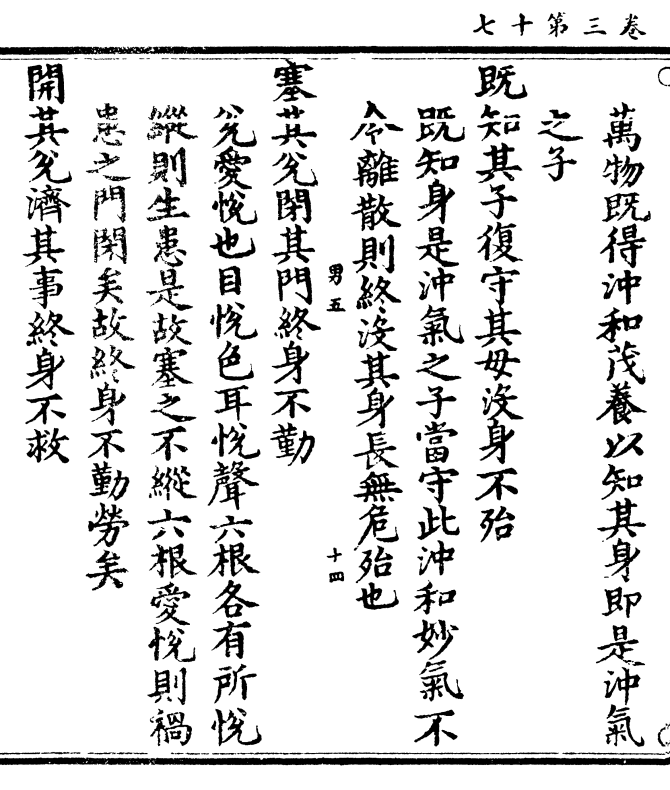 卷三第十七
萬物既得沖和茂養以知其身即是沖氣
之子
既知其子復守其母沒身不殆
既知身是沖氣之子當守此沖和妙氣不
令離散則終沒其身長無危殆也
男五
十四
塞其兌閉其門終身不勤
兌愛悅也目悅色耳悅聲六根各有所悅
縱則生患是故塞之不縱六根愛悅則禍
患之門閉矣故終身不勤勞矣
開其兌濟其事終身不救